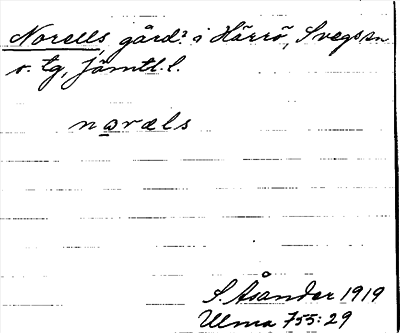 Norells, gård? i Härrö, Svegs sn
o. tg, Jämtl. l.
noræls
S. Åsander 1919
Ulma 755:29